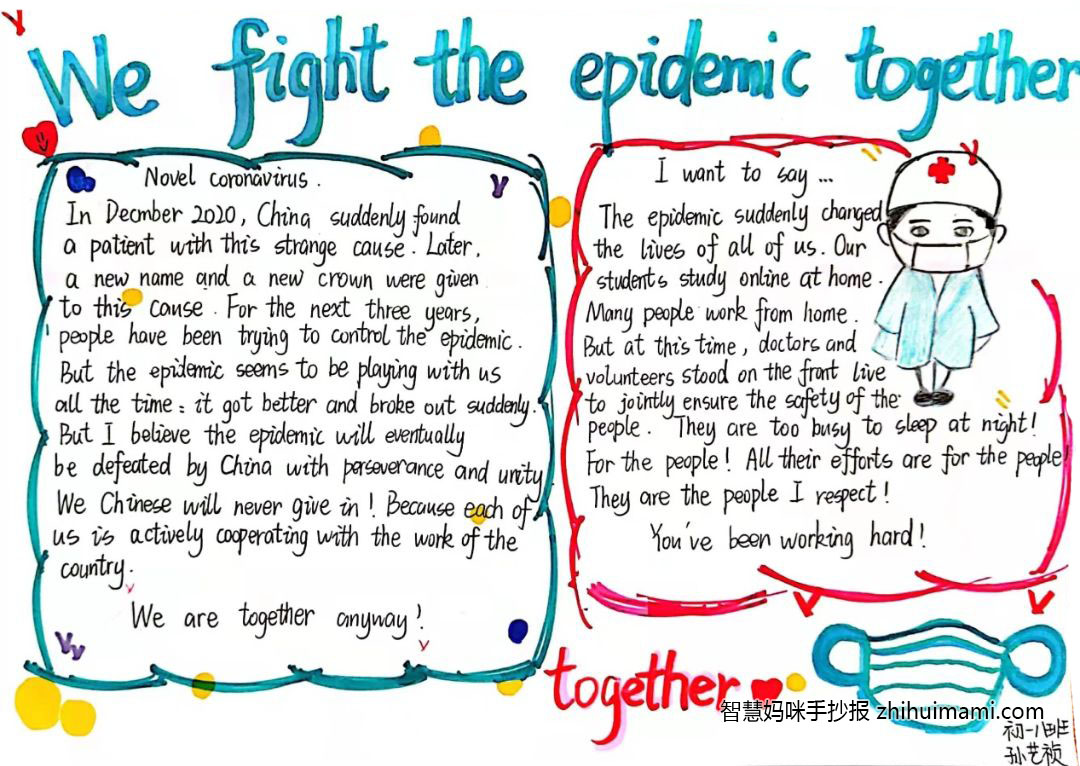 We fight the epidemic together
Novel coronavirus.
In Decmber 2020, China suddenly found
a patient with this strange cause. Later,
a new name and a new crown were given
to this cause. For the next three years,
people have been trying to control the epidemic.
But the epidemic seems to be playing with us
all the time: it got better and broke out suddenly.
But I believe the epidemic will eventually
be defeated by China with perseverance and unity
We Chinese will never give in! Because each of
us is actively cooperating with the work of the
country.
We are together anyway!
I want to say ...
The epidemic suddenly changed
the lives of all of us. Our
students study online at home.
Many people work from home.
But at this time, doctors and
volunteers stood on the front live
to jointly ensure the safety of the
people. They are too busy to sleep at night!
For the people! All their efforts are for the people!
They are the people I respect!
You've been working hard!
together
智慧妈咪手抄报 zhihuimami.com
初一八班
孙艺祯